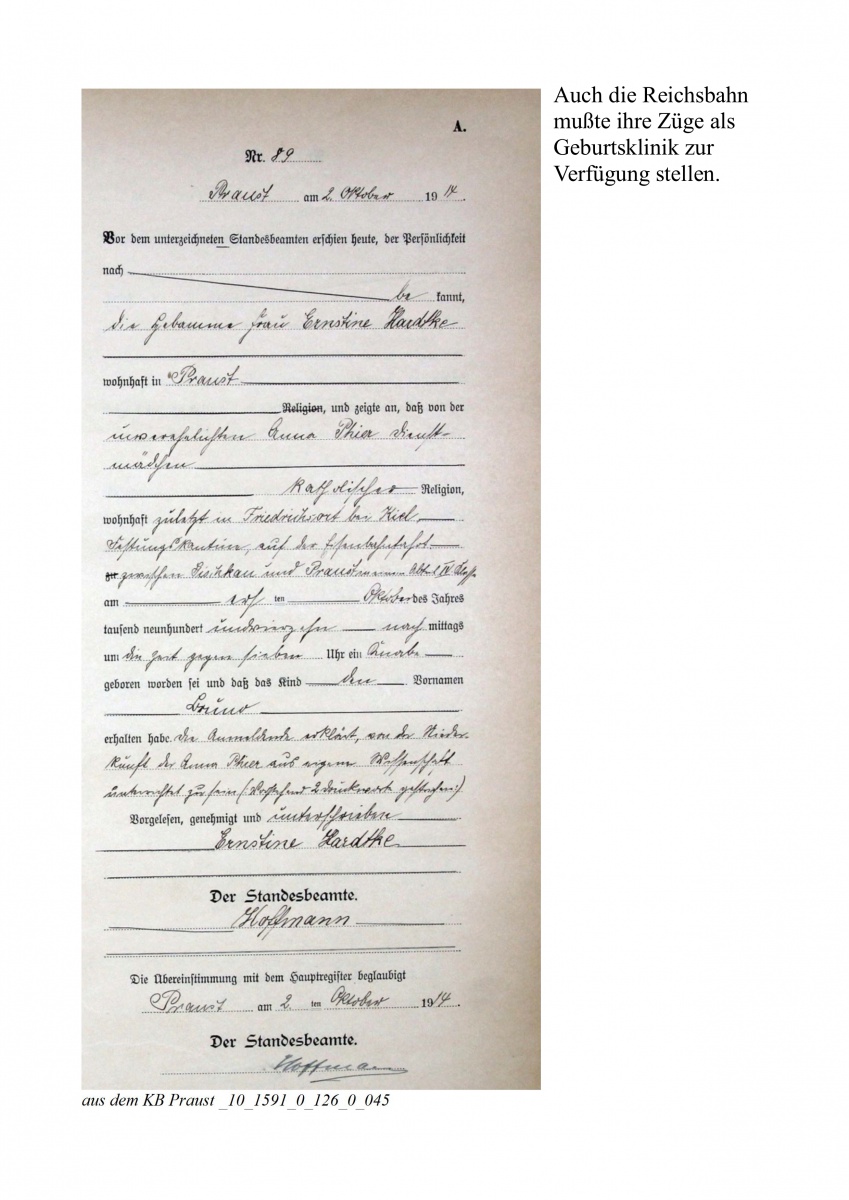 A.
Nr. 89
Praust am 2. Oktober 1914.
Vor dem unterzeichneten Standesbeamten erschien heute, der Persönlichkeit
nach
be kannt,
die Hebamme Frau Ernstine Hardtke
wohnhaft in Praust
Religion, und zeigte an, daß von der
unverehelichten Anna Thier Dienst-
mädchen
katholischer Religion,
wohnhaft zuletzt in Friedrichsort bei Kiel
Festungskantine, auf der Eisenbahnfahrt
zu zwischen und Praust Abteil IV Klasse
am ersten Oktober des Jahres
tausend neunhundert undvierzehn nach mittags
um die Zeit gegen sieben Uhr ein Knabe
geboren worden sei und daß das Kind den Vornamen
Bruno
erhalten habe. Die Anmeldende erklärt, von der Nieder-
kunft der Anna Thier aus eigener Wissenschaft
unterrichtet zu sein (Vorstehend 2 Druckworte gestrichen)
Vorgelesen, genehmigt und unterschrieben
Ernstine Hardtke
Der Standesbeamte.
Hoffmann
Die Übereinstimmung mit dem Hauptregister beglaubigt
Praust am 2. ten Oktober 1914.
Der Standesbeamte.
Hoffmann
Auch die Reichsbahn
mußte ihre Züge als
Geburtsklinik zur
Verfügung stellen.
aus dem KB Praust _10_1591_0_126_0_045